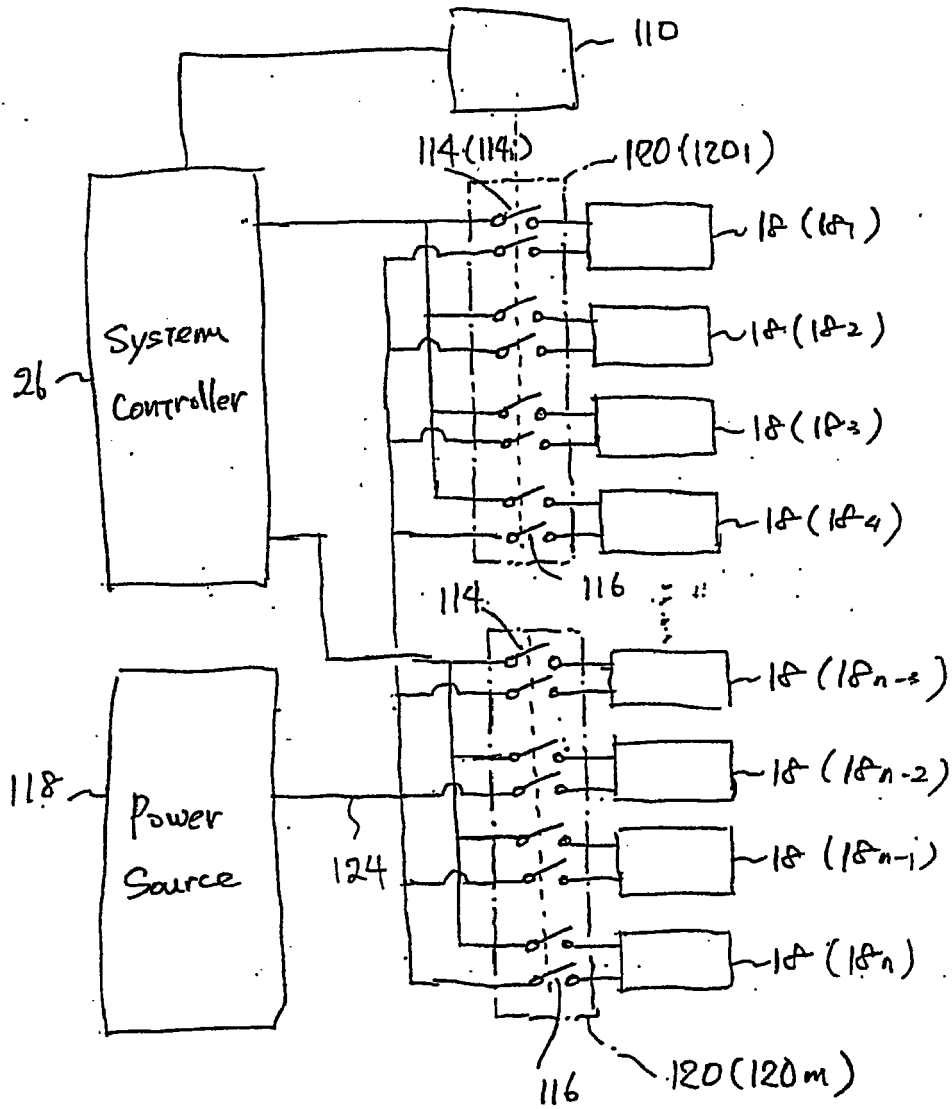 110
114 (114i)
120 (1201)
18 (181)
18 (18-2)
18 (183)
18 (18-4)
System
Controller
26
116
114
18 (18n-3)
18 (18n-2)
18 (18n-1)
18 (18n)
118
Power
Source
124
116
120 (120m)